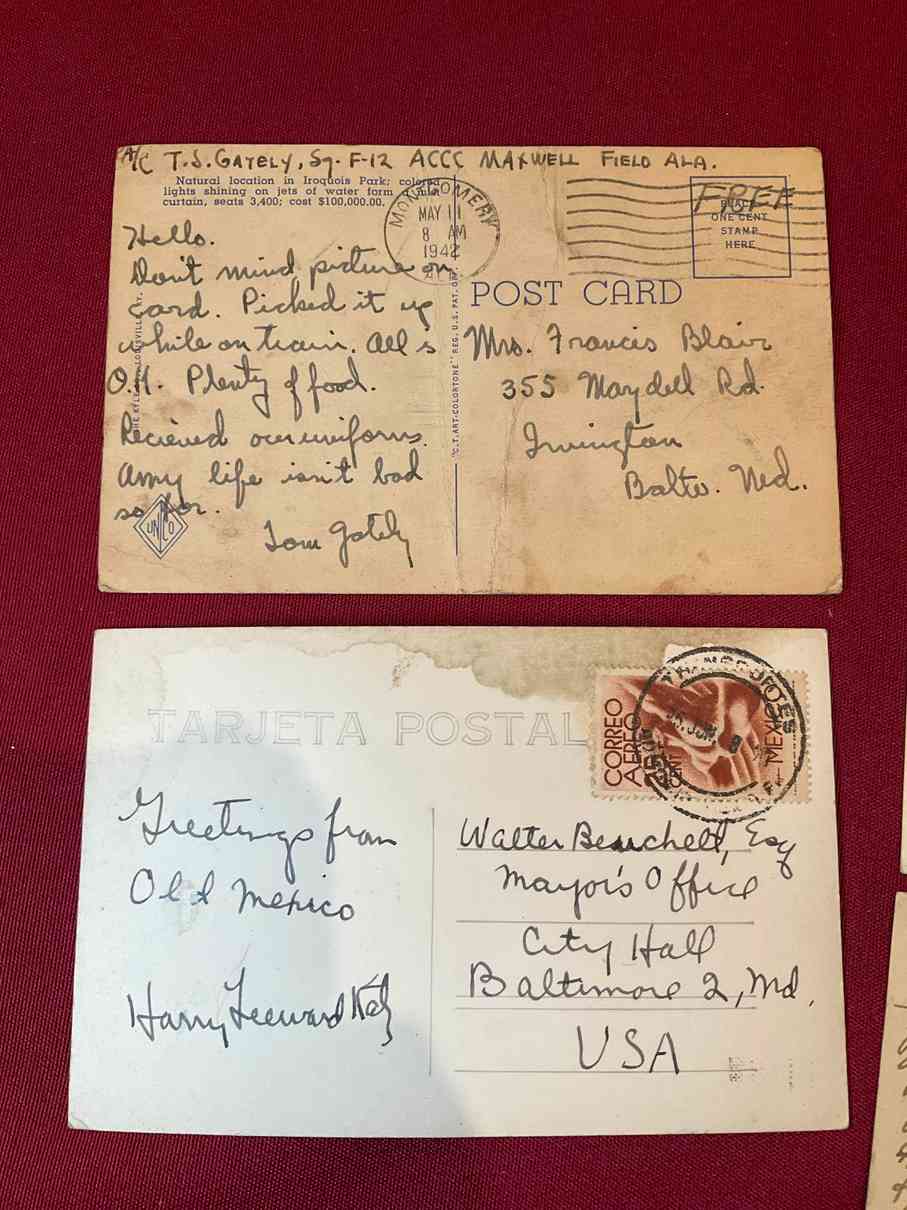 A/C T.S. GATELY, Sq. F-12 ACCC MAXWELL FIELD ALA.
Natural location in Iroquois Park; colored
lights shining on jets of water form
curtain, seats 3,400; cost $100,000.00.
Hello.
Don't mind picture on
card. Picked it up
while on train. All's
O.K. Plenty of food.
Recieved our uniforms.
Army life isn't bad
so far.
Tom Gately
UNCO
MONTGOMERY
MAY 11
8 AM
1942
ALA.
"C.T. ART-COLORTONE" REG. U.S. PAT. OFF.
FREE
PLACE
ONE CENT
STAMP
HERE
POST CARD
Mrs. Francis Blair
355 Maydell Rd.
Irvington
Balto. Md.
TARJETA POSTAL
CORREO
AEREO
MEXICO
Greetings from
Old Mexico
Harry Leeward Katz
Walter Beuchelt, Esq
Mayor's Office
City Hall
Baltimore 2, Md.
USA